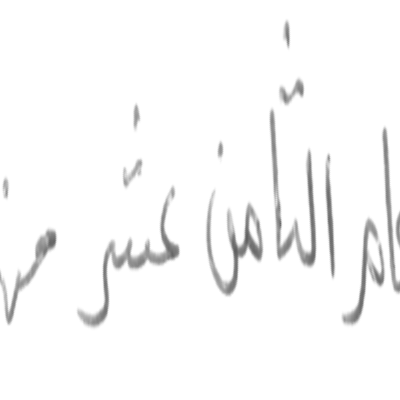 عام الثامن عشر من